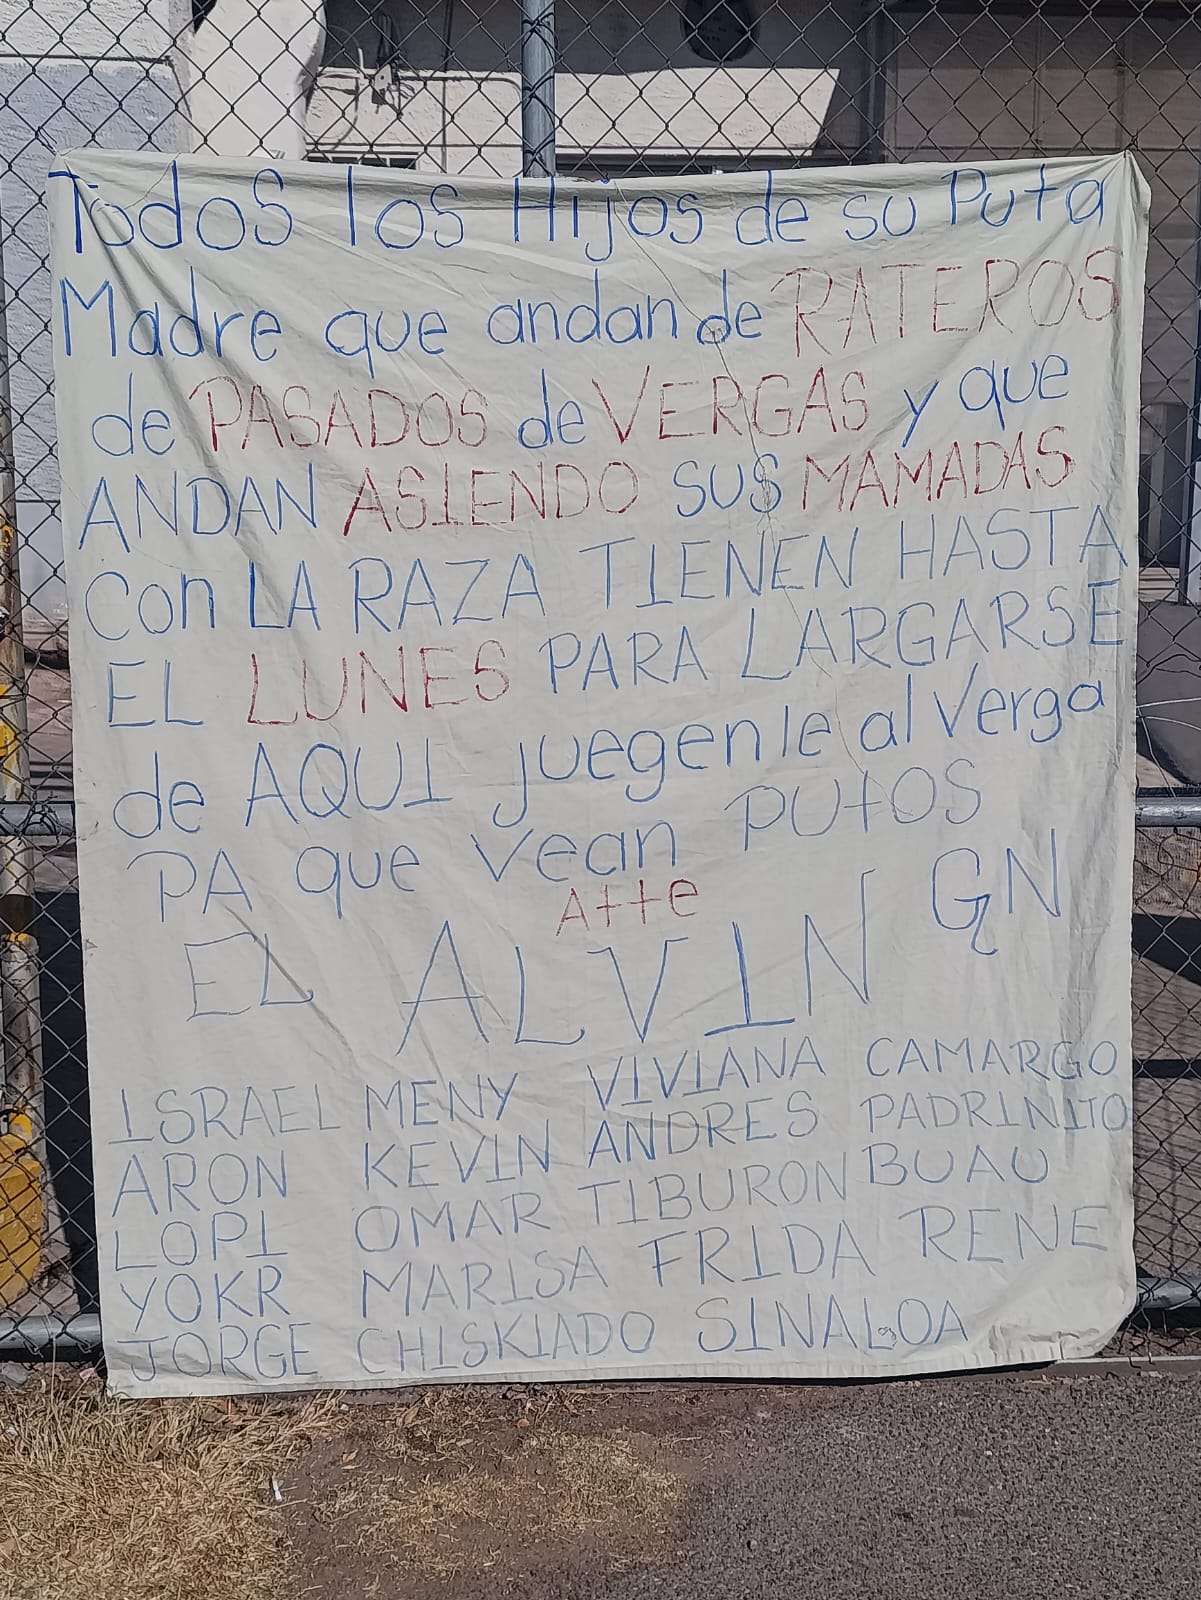 Todos los Hijos de su Puta
Madre que andan de RATEROS
de PASADOS de VERGAS y que
ANDAN ASIENDO SUS MAMADAS
Con LA RAZA TIENEN HASTA
EL LUNES PARA LARGARSE
de AQUI juegenle al Verga
PA que vean PUtOS
Atte
EL ALVIN GN
ISRAEL MENY VIVIANA CAMARGO
ARON KEVIN ANDRES PADRINITO
LOPI OMAR TIBURON BUAU
YOKR MARISA FRIDA RENE
JORGE CHISKIADO SINALOA